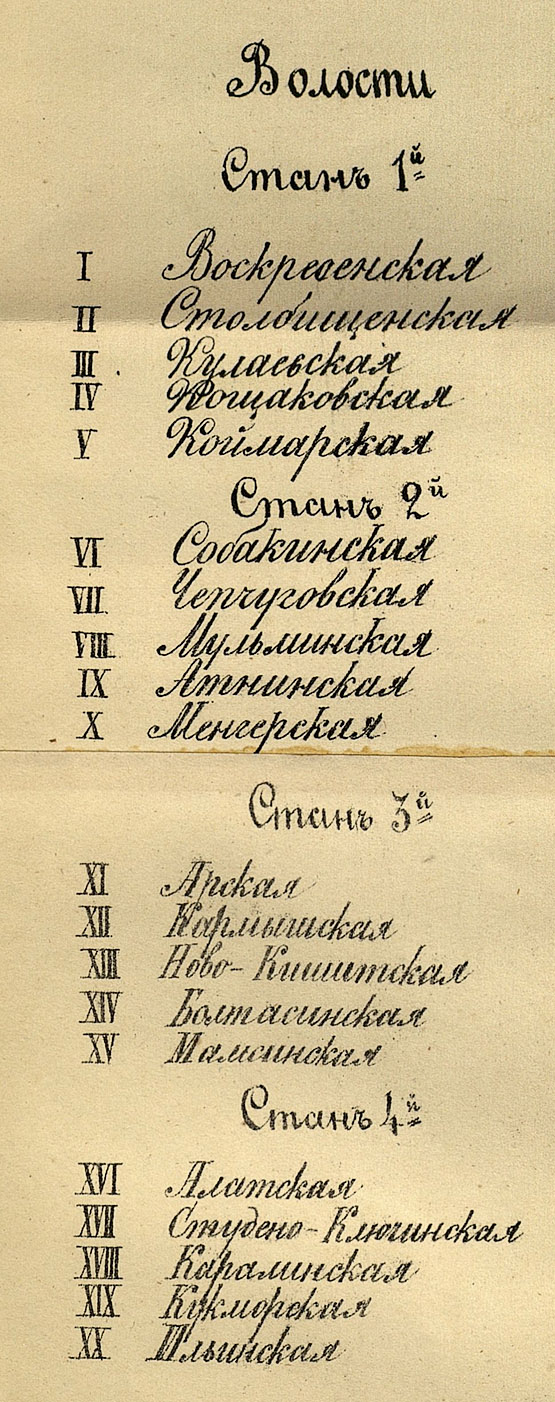 Волости
Станъ 1й
I Воскресенская
II Столбищенская
III Кулаевская
IV Кощаковская
V Коймарская
Станъ 2й
VI Собакинская
VII Чепчуговская
VIII Мульминская
IX Атнинская
X Менгерская
Станъ 3й
XI Арская
XII Кармышская
XIII Ново-Кишитская
XIV Балтасинская
XV Мамсинская
Станъ 4й
XVI Алатская
XVII Студено-Ключинская
XVIII Караминская
XIX Кукморская
XX Ильинская